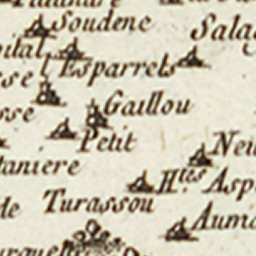 Soudene
Salag
pital
Esparrets
Gaillou
Petit
Neu
taniere
H.tes Asp
de Turassou
Auma